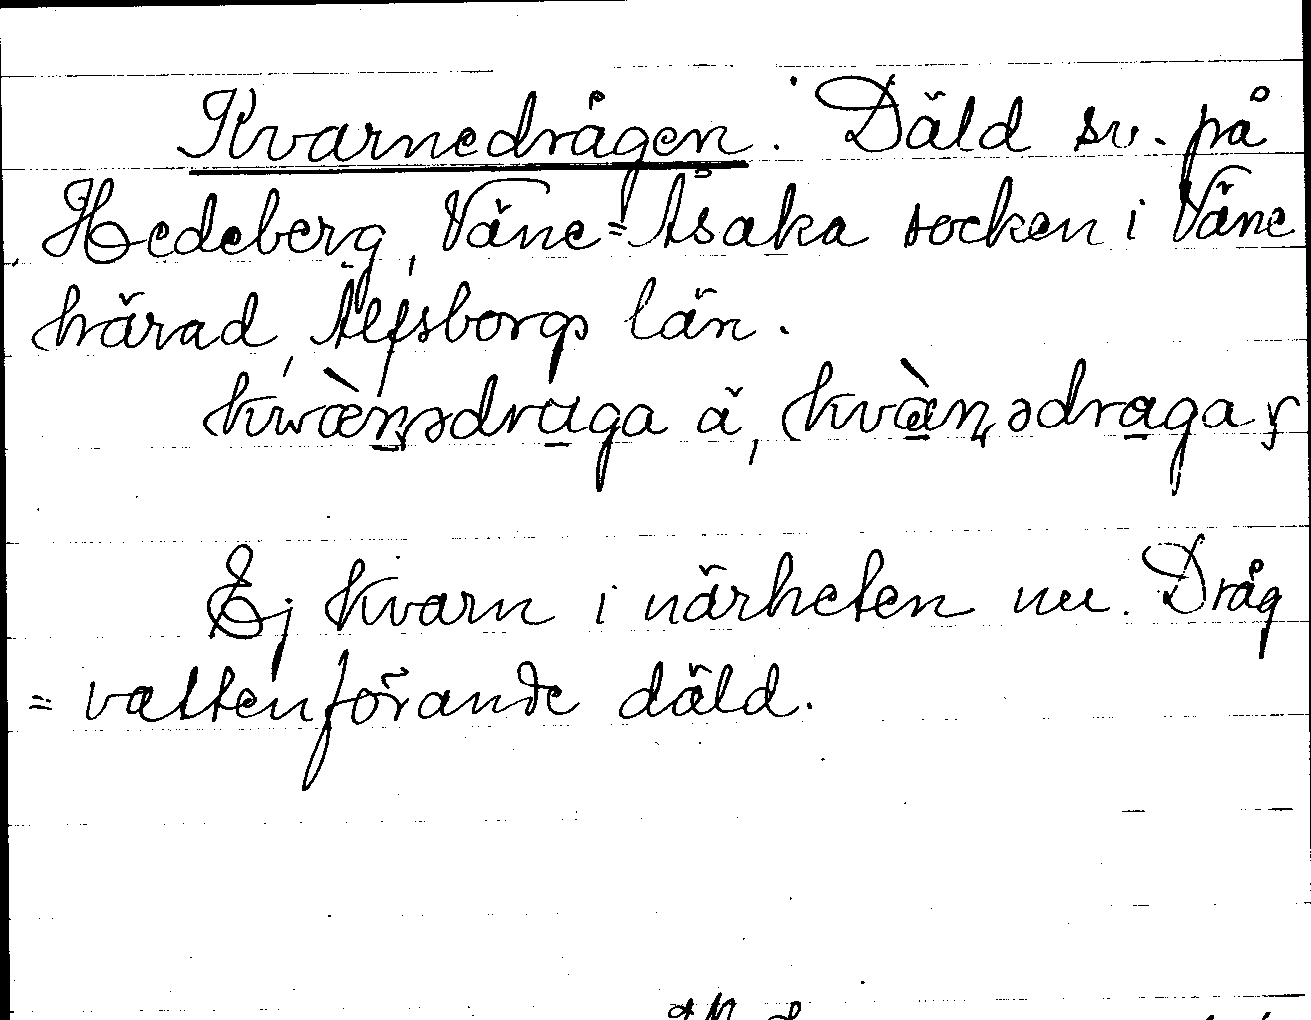 Kvarnedrågen. Däld sv. på
Hedeberg, Väne=Åsaka socken i Väne
härad, Älfsborgs län.
kwæ̀n̥ədraga ä, kvàn̥ədragaʒ
Ej kvarn i närheten nu. Dråg
= vattenförande däld.